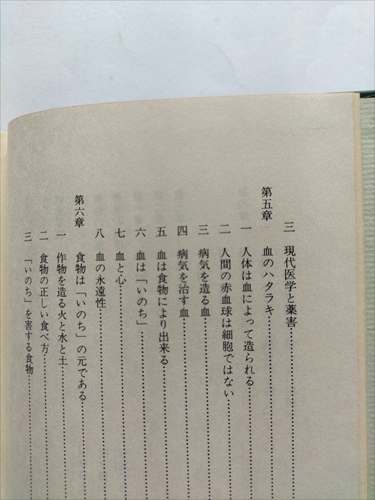 三　現代医学と薬害
第五章　血のハタラキ
一　人体は血によって造られる
二　人間の赤血球は細胞ではない
三　病気を造る血
四　病気を治す血
五　血は食物により出来る
六　血は「いのち」
七　血と心
八　血の永遠性
第六章　食物は「いのち」の元である
一　作物を造る火と水と土
二　食物の正しい食べ方
三　「いのち」を害する食物